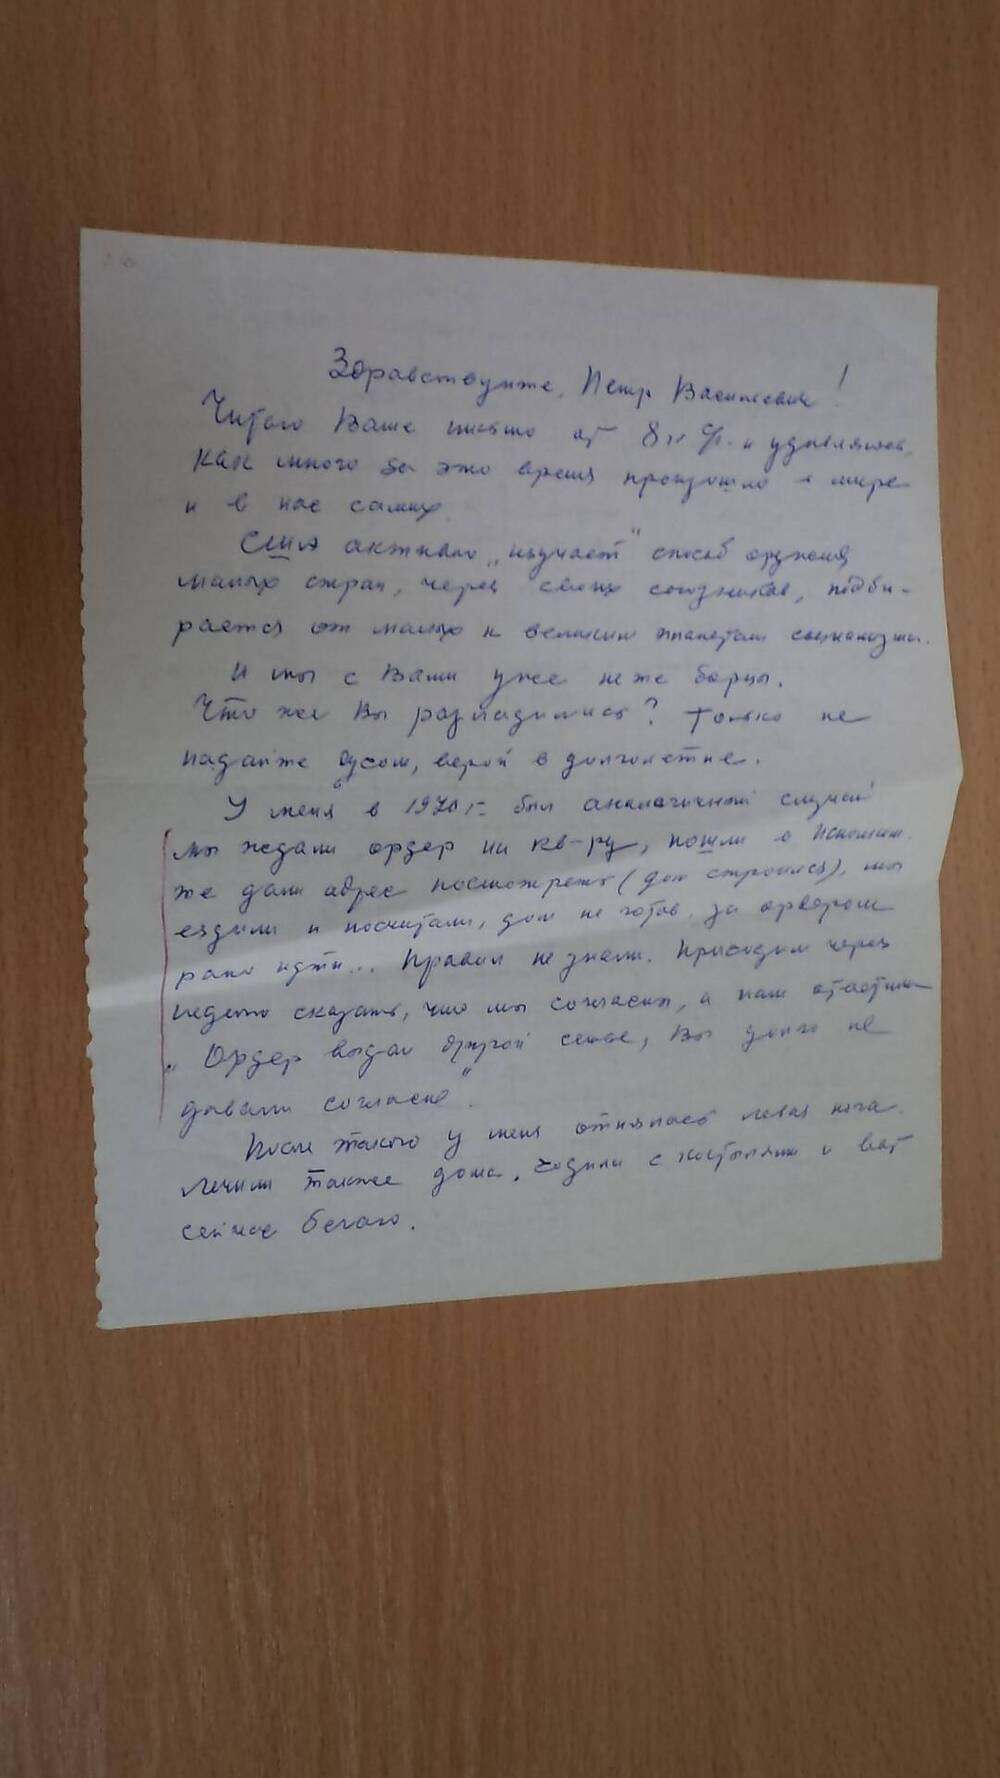 Здравствуйте, Петр Васильевич!
Читаю Ваше письмо от и удивляюсь,
как много за это время произошло в мире
и в нас самих.
США активно „изучает" способ
малых стран, через своих союзников, подби-
рается от малых к великим планетам
И мы с Вами уже не те борцы.
Что же Вы разладились? Только не
падайте духом, верой в долголетие.
У меня в 1970 г. был аналогичный случай
мы ждали ордер на кв-ру, пошли в
же дали адрес посмотреть (дом строился), мы
ездили и посчитали, дом не готов, за ордером
рано идти... Правил не знали. Приходим через
неделю сказать, что мы согласны, а нам
„Ордер выдан другой семье, Вы долго не
давали согласие".
После такого у меня отнялась левая нога.
Лечили также дома, ходила с костылями и вот
сейчас бегаю.